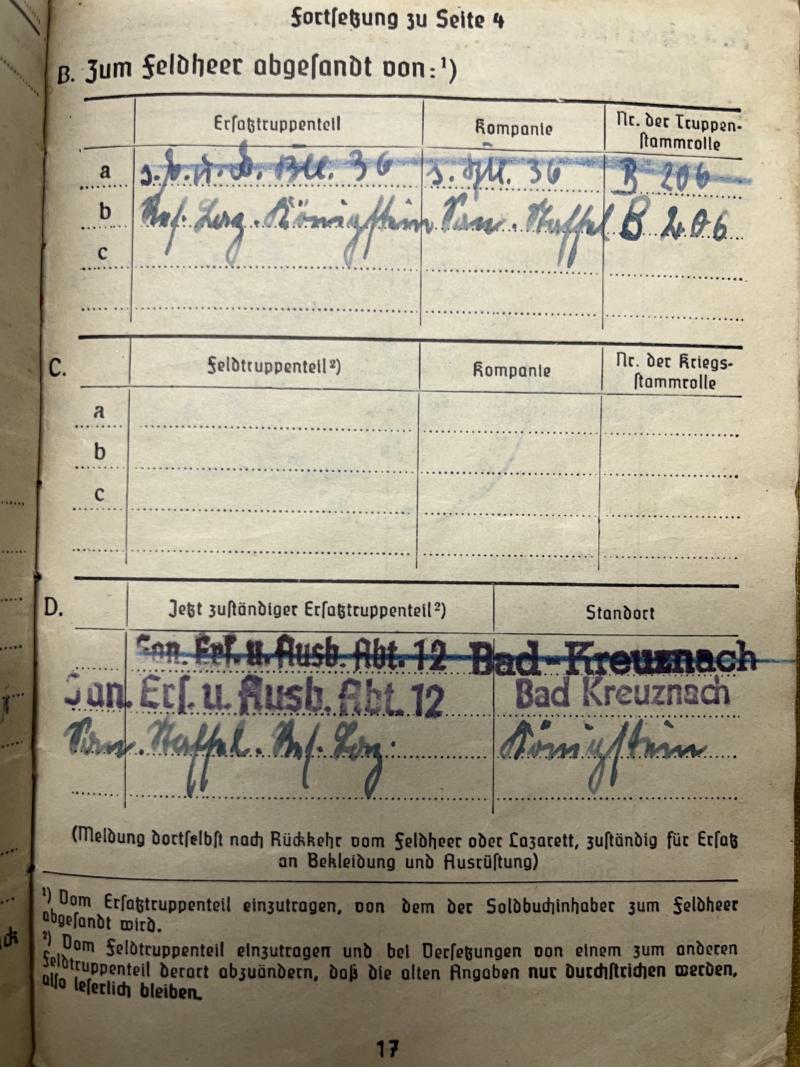 Fortsetzung zu Seite 4
B. Zum Feldheer abgesandt von:¹)
Ersatztruppenteil Kompanie Nr. der Truppen-
stammrolle
a 36 36 B 206
b Res. Laz. Königstein San. Staffel B 406
c
C. Feldtruppenteil²) Kompanie Nr. der Kriegs-
stammrolle
a
b
c
D. Jetzt zuständiger Ersatztruppenteil²) Standort
San. Ers. u. Ausb. Abt. 12 Bad-Kreuznach
San. Ers. u. Ausb. Abt. 12 Bad Kreuznach
San. Staffel. Res. Laz. Königstein
(Meldung dortselbst nach Rückkehr vom Feldheer oder Lazarett, zuständig für Ersatz
an Bekleidung und Ausrüstung)
¹) Vom Ersatztruppenteil einzutragen, von dem der Soldbuchinhaber zum Feldheer
abgesandt wird.
²) Vom Feldtruppenteil einzutragen und bei Versetzungen von einem zum anderen
Feldtruppenteil derart abzuändern, daß die alten Angaben nur durchstrichen werden,
also leserlich bleiben.
17